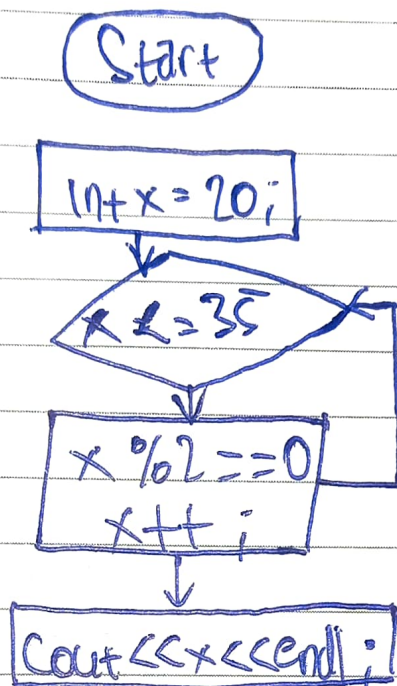 Start
int x = 20;
x <= 35
x %2 == 0
x++ ;
cout<<x<<endl;